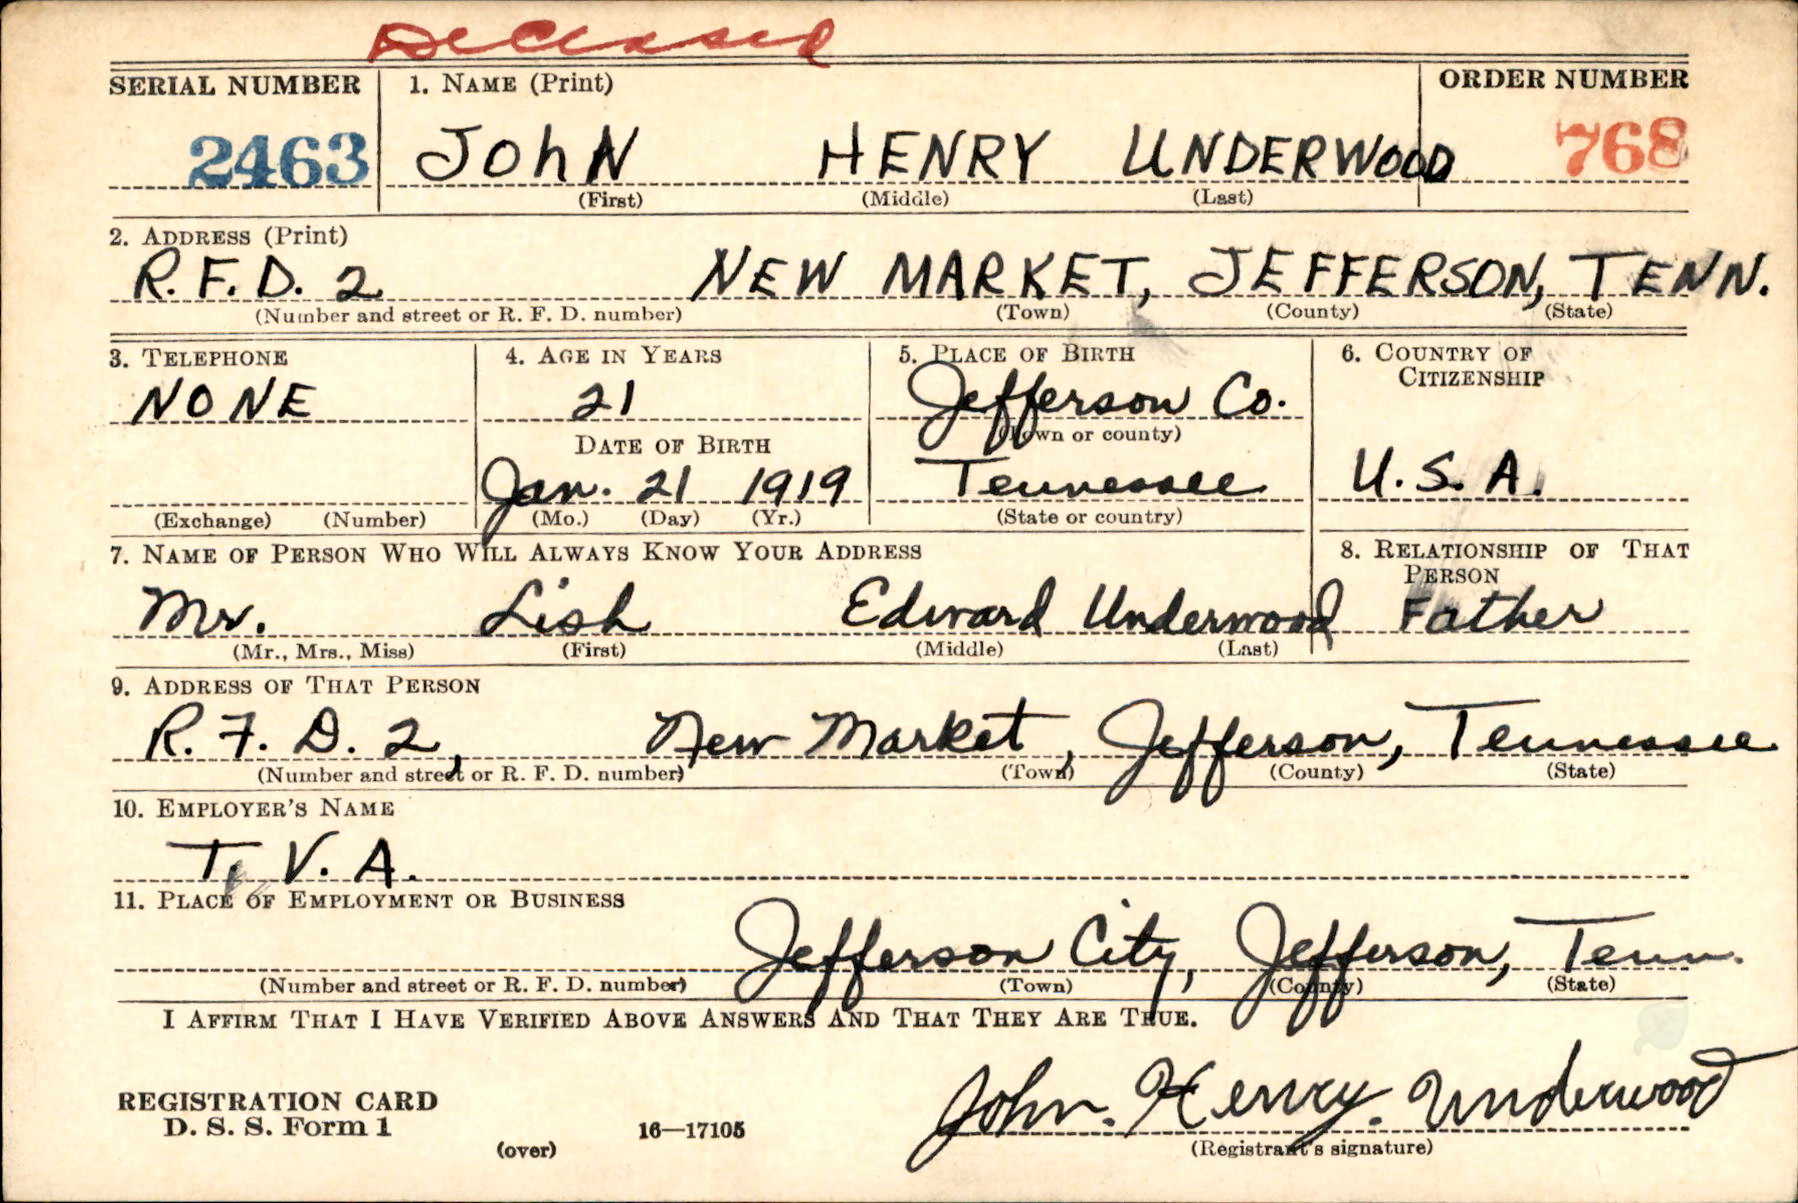 Deceased
SERIAL NUMBER 1. NAME (Print) ORDER NUMBER
2463 JOhN HENRY UNDERWOOD 768
(First) (Middle) (Last)
2. ADDRESS (Print)
R.F.D. 2 NEW MARKET, JEFFERSON, TENN.
(Number and street or R. F. D. number) (Town) (County) (State)
3. TELEPHONE 4. AGE IN YEARS 5. PLACE OF BIRTH 6. COUNTRY OF
CITIZENSHIP
NONE 21 Jefferson Co.
(Town or county)
DATE OF BIRTH
Jan. 21 1919 Tennessee U.S.A.
(Exchange) (Number) (Mo.) (Day) (Yr.) (State or country)
7. NAME OF PERSON WHO WILL ALWAYS KNOW YOUR ADDRESS 8. RELATIONSHIP OF THAT
PERSON
Mr. Lish Edward Underwood Father
(Mr., Mrs., Miss) (First) (Middle) (Last)
9. ADDRESS OF THAT PERSON
R.F.D. 2, New Market, Jefferson, Tennessee
(Number and street or R. F. D. number) (Town) (County) (State)
10. EMPLOYER'S NAME
T. V. A.
11. PLACE OF EMPLOYMENT OR BUSINESS
Jefferson City, Jefferson, Tenn.
(Number and street or R. F. D. number) (Town) (County) (State)
I AFFIRM THAT I HAVE VERIFIED ABOVE ANSWERS AND THAT THEY ARE TRUE.
John. Henry. Underwood
REGISTRATION CARD
D. S. S. Form 1
(over) 16—17105 (Registrant's signature)